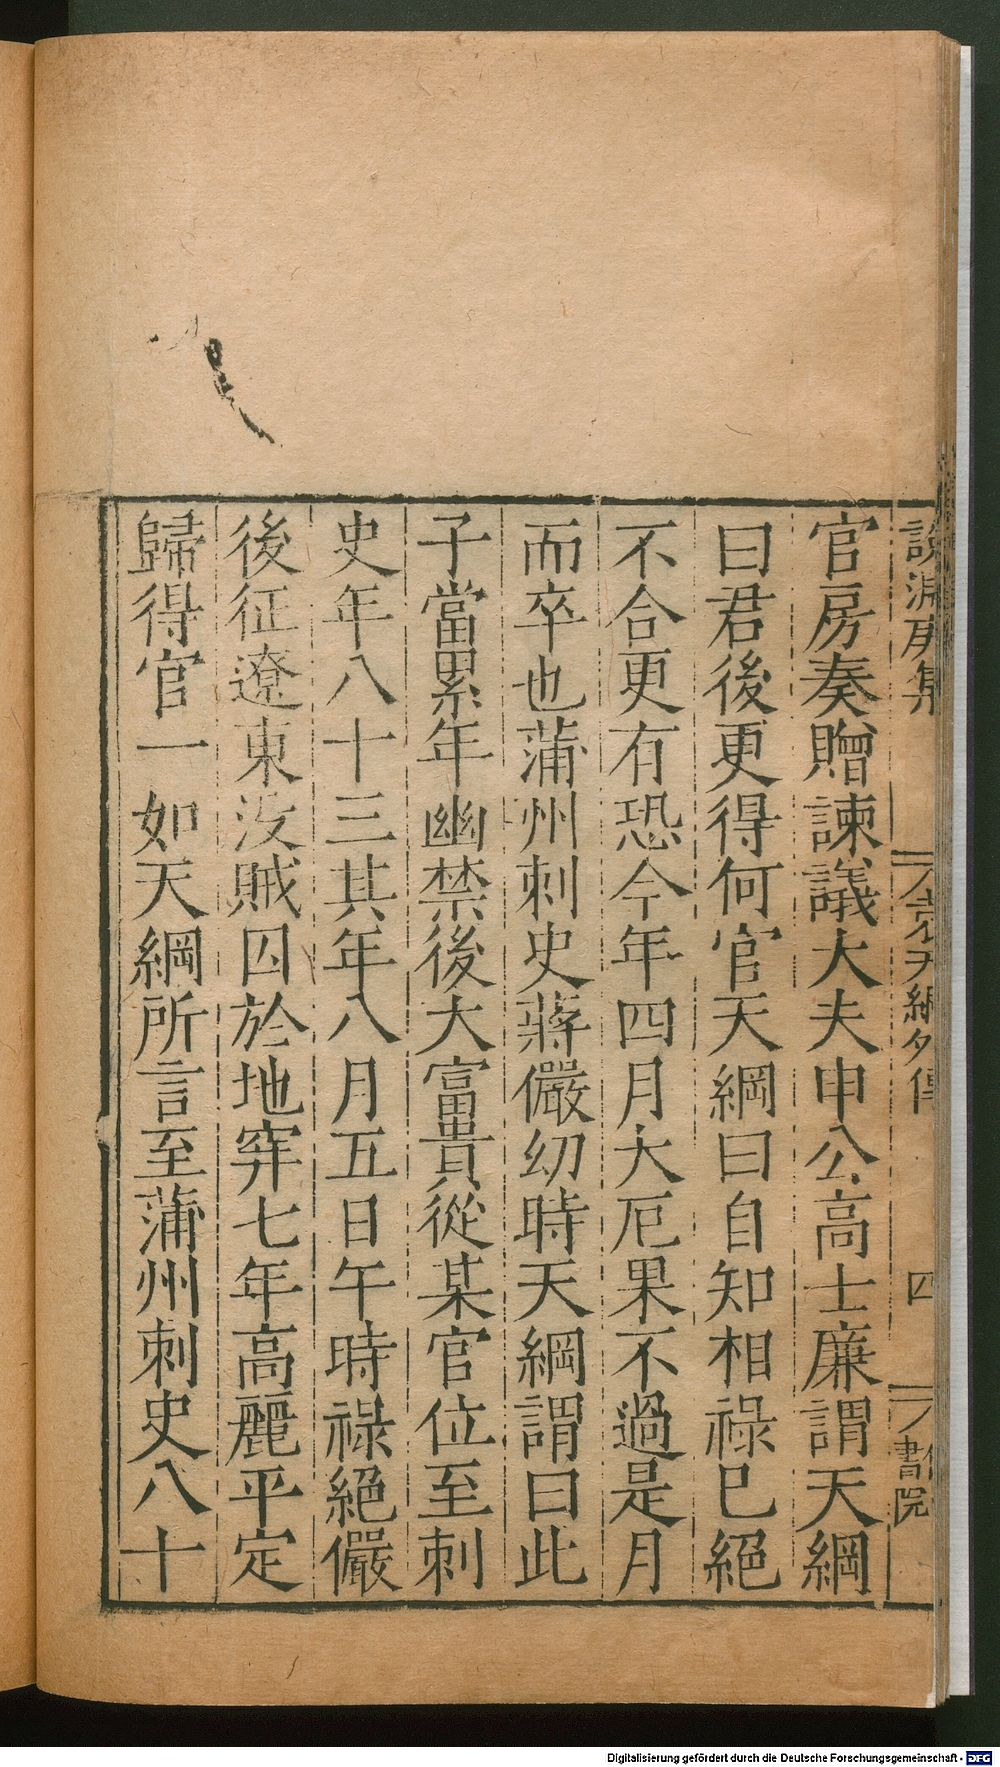 說淵庚集 袁天綱外傳 四 書院
官房奏贈諫議大夫申公高士廉謂天綱
曰君後更得何官天綱曰自知相祿已絕
不合更有恐今年四月大厄果不過是月
而卒也蒲州刺史蔣儼幼時天綱謂曰此
子當累年幽禁後大富貴從某官位至刺
史年八十三其年八月五日午時祿絕儼
後征遼東沒賊囚於地穽七年高麗平定
歸得官一如天綱所言至蒲州刺史八十
Digitalisierung gefördert durch die Deutsche Forschungsgemeinschaft - DFG